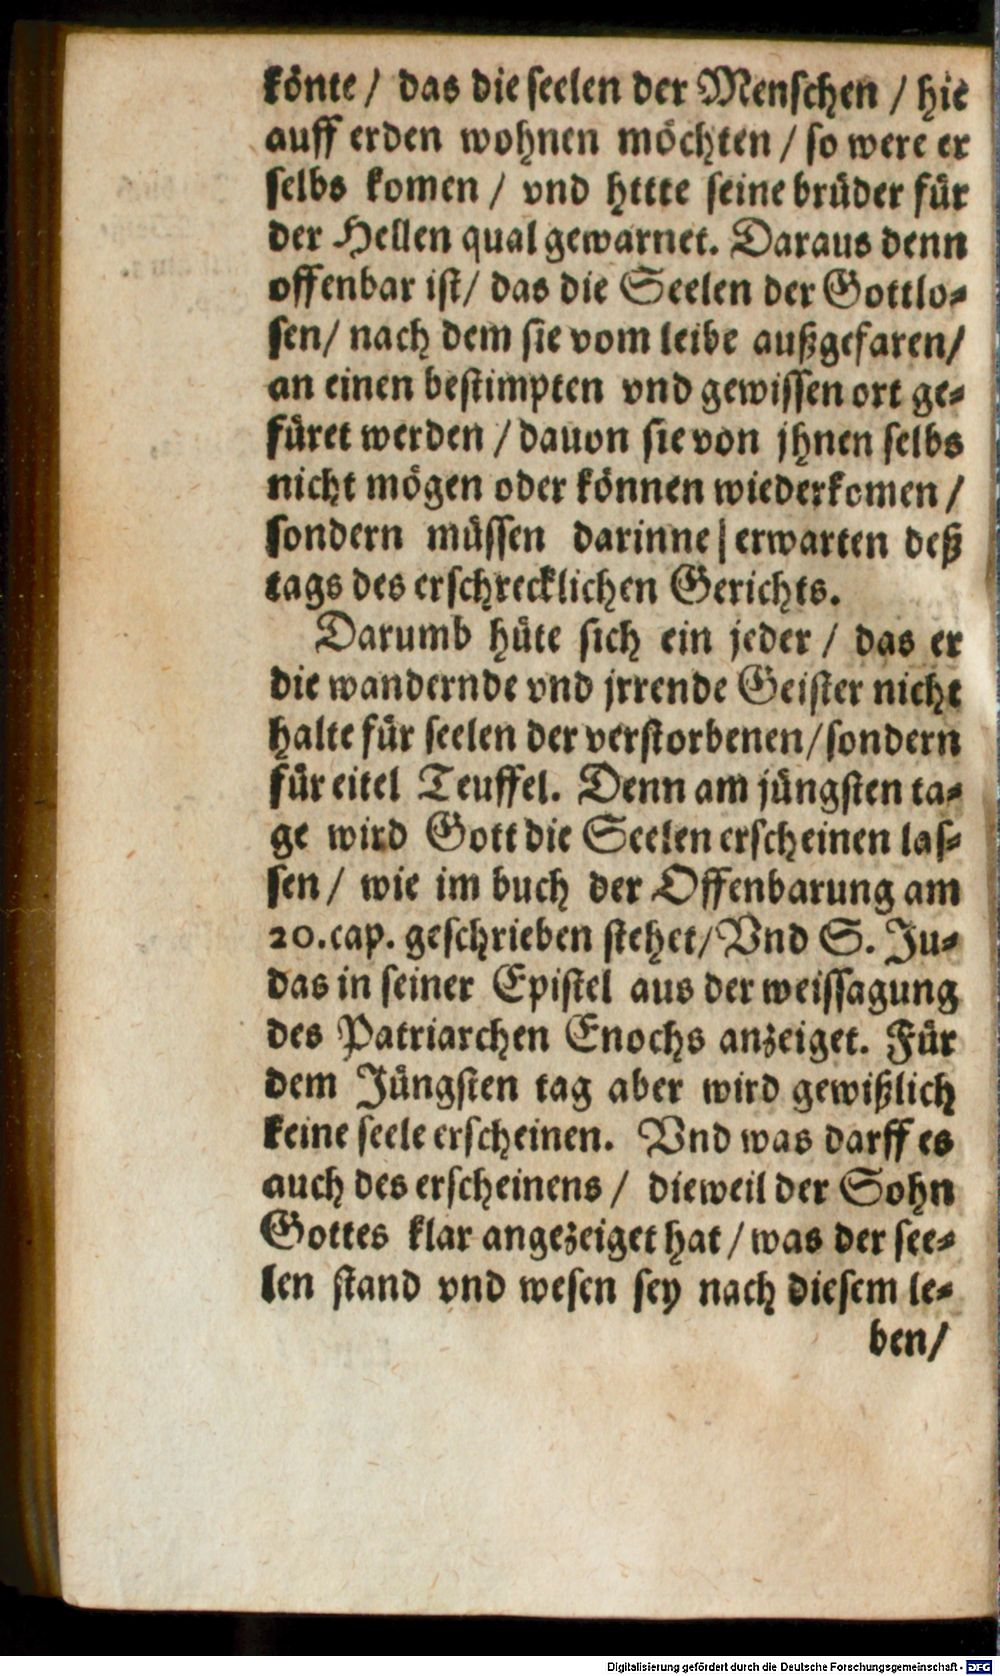 könte / das die seelen der Menschen / hie
auff erden wohnen möchten / so were er
selbs komen / vnd httte seine brüder für
der Hellen qual gewarnet. Daraus denn
offenbar ist/ das die Seelen der Gottlo-
sen/ nach dem sie vom leibe außgefaren/
an einen bestimpten vnd gewissen ort ge-
füret werden / dauon sie von jhnen selbs
nicht mögen oder können wiederkomen /
sondern müssen darinne| erwarten deß
tags des erschrecklichen Gerichts.
Darumb hüte sich ein jeder / das er
die wandernde vnd jrrende Geister nicht
halte für seelen der verstorbenen/ sondern
für eitel Teuffel. Denn am jüngsten ta-
ge wird Gott die Seelen erscheinen las-
sen / wie im buch der Offenbarung am
20. cap. geschrieben stehet/ Vnd S. Ju-
das in seiner Epistel aus der weissagung
des Patriarchen Enochs anzeiget. Für
dem Jüngsten tag aber wird gewißlich
keine seele erscheinen. Vnd was darff es
auch des erscheinens / dieweil der Sohn
Gottes klar angezeiget hat / was der see-
len stand vnd wesen sey nach diesem le-
ben/
Digitalisierung gefördert durch die Deutsche Forschungsgemeinschaft - DFG